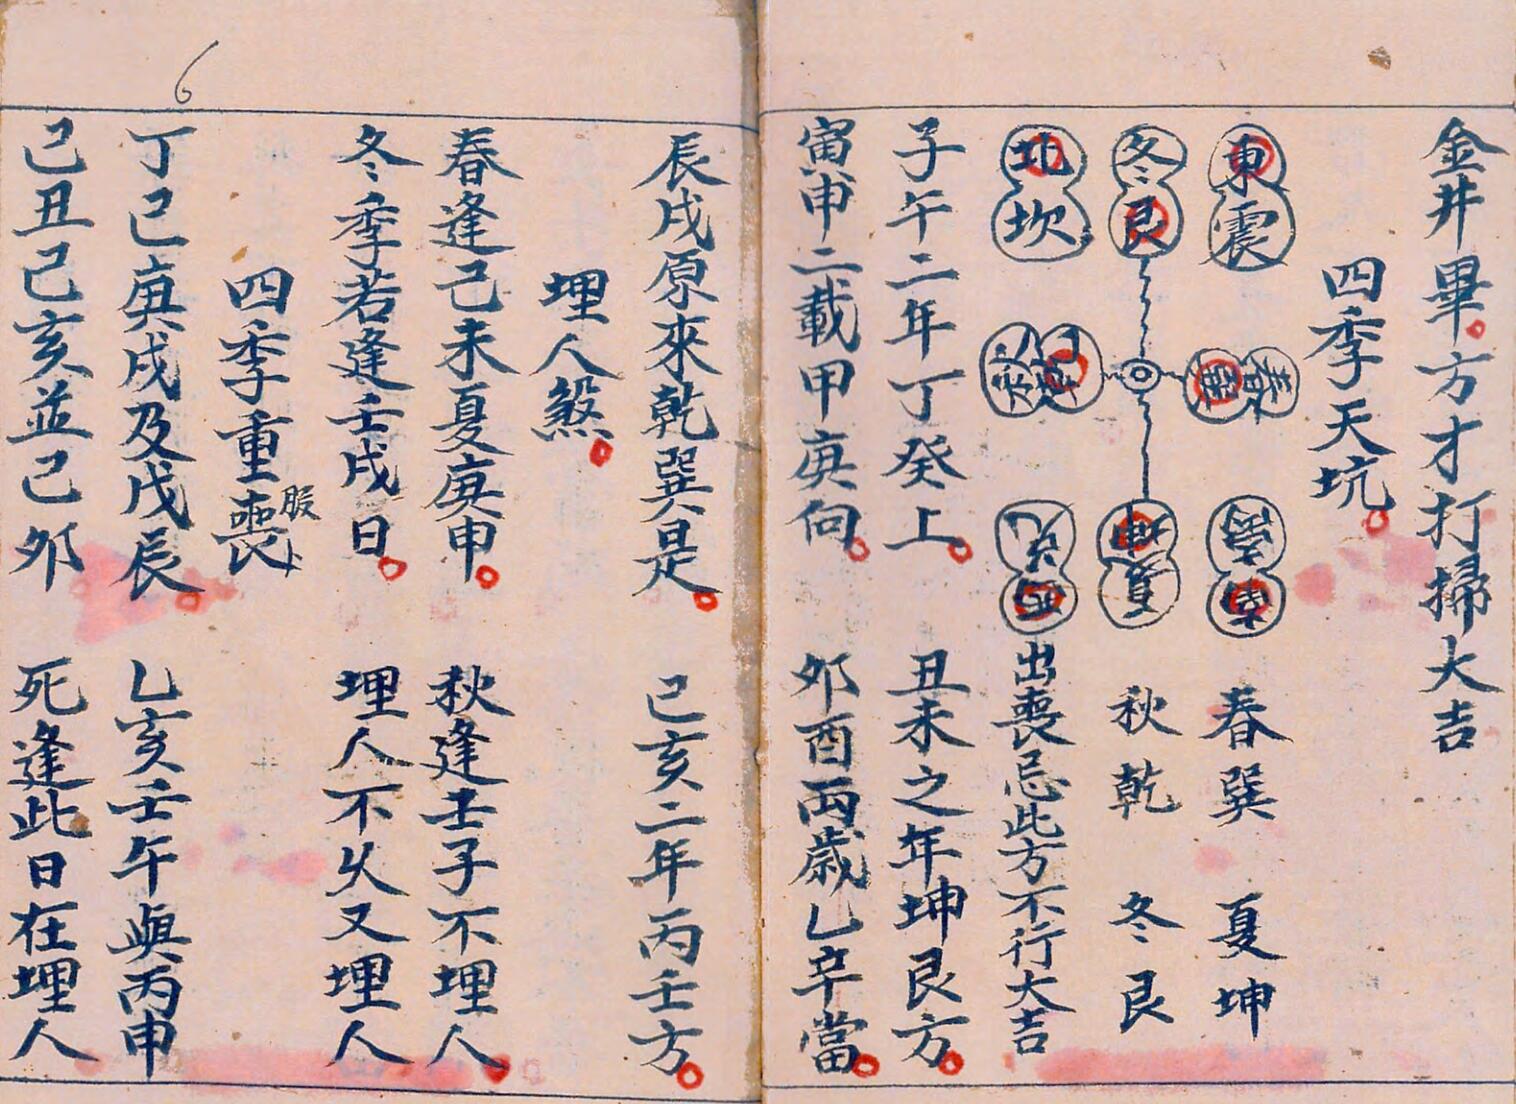 金井畢方才打掃大吉
四季天坑
東震
冬艮
北坎
春
巽
秋
乾
南
离
坤
夏
西
兑
春巽 夏坤
秋乾 冬艮
出喪忌此方不行大吉
子午二年丁癸上 丑未之年坤艮方
寅申二載甲庚向 夘酉兩歲乙辛當
辰戌原來乾巽是 巳亥二年丙壬方
埋人煞
春逢己未夏庚申 秋逢壬子不埋人
冬季若逢壬戌日 埋人不久又埋人
四季重喪服
丁巳庚戌及戊辰 乙亥壬午與丙申
己丑己亥並己夘 死逢此日在埋人
6